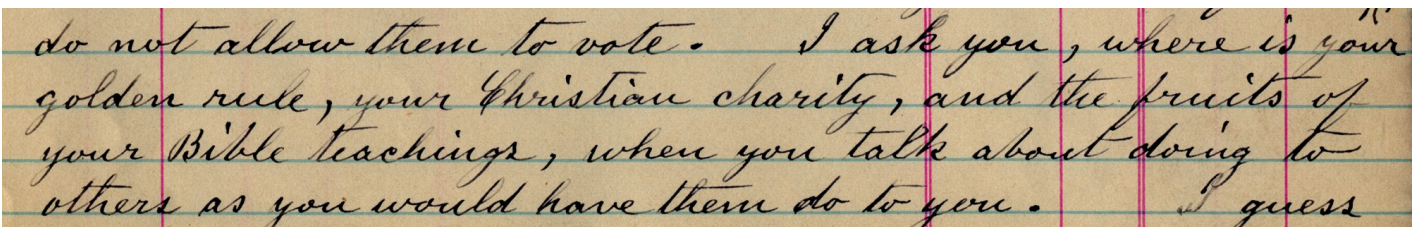 do not allow them to vote. I ask you, where is your
golden rule, your Christian charity, and the fruits of
your Bible teachings, when you talk about doing to
others as you would have them do to you. I guess